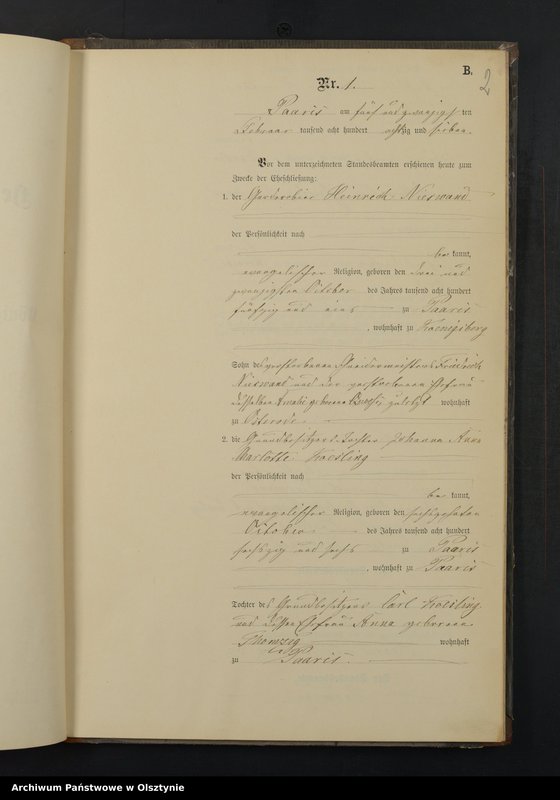 B.
2
Nr. 1.
Paaris am fünf und zwanzigsten
Februar tausend acht hundert achtzig und sieben.
Vor dem unterzeichneten Standesbeamten erschienen heute zum
Zwecke der Eheschließung:
1. der Heinrich Nieswand
der Persönlichkeit nach
be kannt,
evangelischer Religion, geboren den drei und
zwanzigsten October des Jahres tausend acht hundert
fünfzig und eins zu Paaris
, wohnhaft zu Koenigsberg
Sohn des verstorbenen Schneidermeisters Friedrich
Nieswand und der verstorbenen Ehefrau
desselben Amalie geborene zuletzt wohnhaft
zu Osterode
2. die Grundbesitzers Tochter Johanna Anna
Charlotte Koesling
der Persönlichkeit nach
be kannt,
evangelischer Religion, geboren den sechszehnten
October des Jahres tausend acht hundert
sechszig und sechs zu Paaris
, wohnhaft zu Paaris
Tochter des Grundbesitzers Carl Koesling
und dessen Ehefrau Anna geborenen
wohnhaft
zu Paaris.
Archiwum Państwowe w Olsztynie